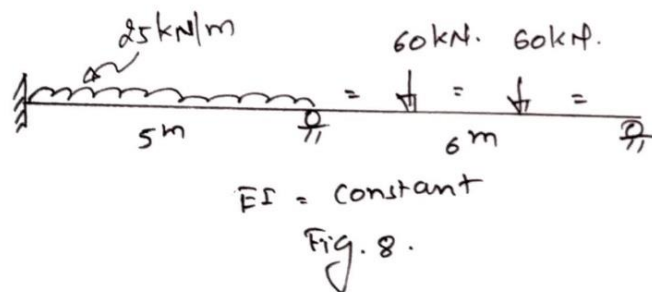 25kN/m
60kN. 60kN.
= = =
5m 6m
EI = constant
Fig. 8.